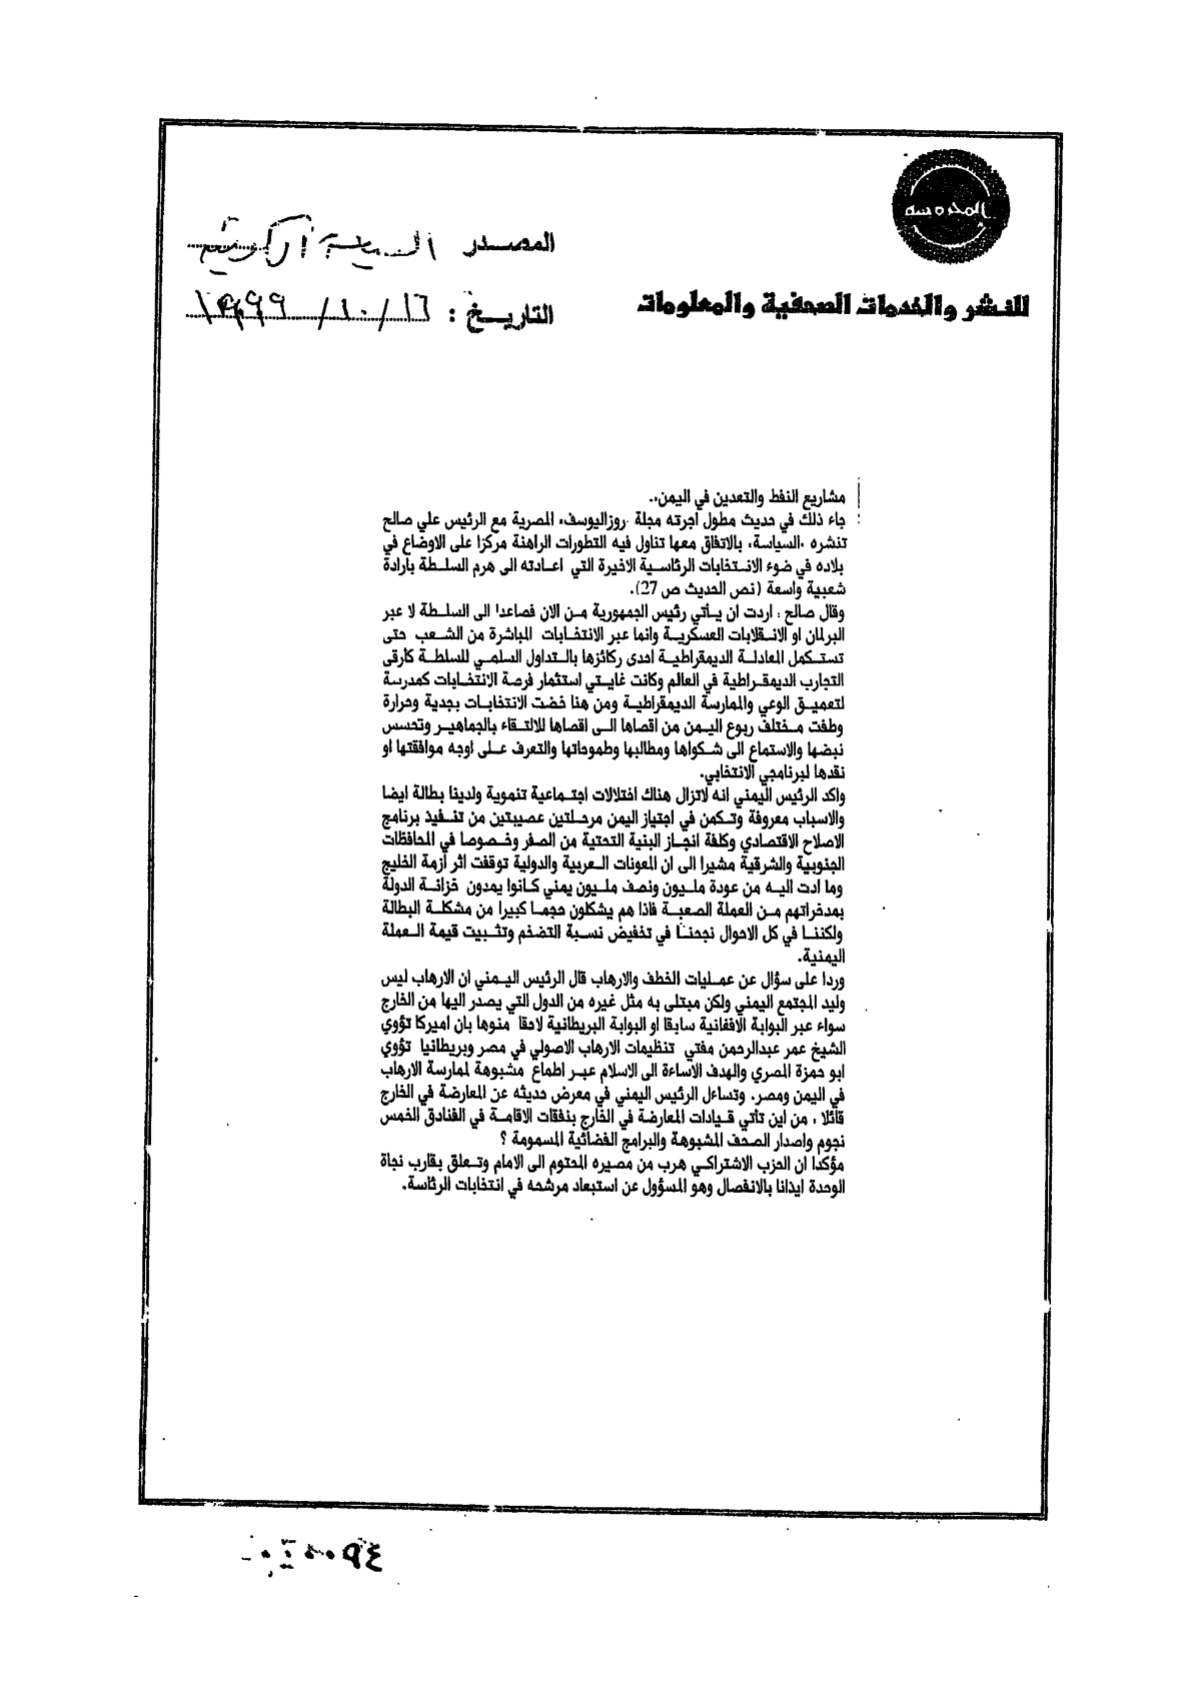 المحروسة
المصدر السياسة الكويتية
للنشر والخدمات الصحفية والمعلومات
التاريخ : ١٦/١٠/١٩٩٩
مشاريع النفط والتعدين في اليمن..
جاء ذلك في حديث مطول اجرته مجلة روزاليوسف، المصرية مع الرئيس علي صالح
تنشره «السياسة» بالاتفاق معها تناول فيه التطورات الراهنة مركزا على الاوضاع في
بلاده في ضوء الانتخابات الرئاسية الاخيرة التي اعادته الى هرم السلطة بارادة
شعبية واسعة (نص الحديث ص 27).
وقال صالح : اردت ان يأتي رئيس الجمهورية من الان فصاعدا الى السلطة لا عبر
البرلمان او الانقلابات العسكرية وانما عبر الانتخابات المباشرة من الشعب حتى
تستكمل المعادلة الديمقراطية احدى ركائزها بالتداول السلمي للسلطة كارقى
التجارب الديمقراطية في العالم وكانت غايتي استثمار فرصة الانتخابات كمدرسة
لتعميق الوعي والممارسة الديمقراطية ومن هنا خضت الانتخابات بجدية وحرارة
وطفت مختلف ربوع اليمن من اقصاها الى اقصاها للالتقاء بالجماهير وتحسس
نبضها والاستماع الى شكواها ومطالبها وطموحاتها والتعرف على اوجه موافقتها او
نقدها لبرنامجي الانتخابي.
واكد الرئيس اليمني انه لاتزال هناك اختلالات اجتماعية تنموية ولدينا بطالة ايضا
والاسباب معروفة وتكمن في اجتياز اليمن مرحلتين عصيبتين من تنفيذ برنامج
الاصلاح الاقتصادي وكلفة انجاز البنية التحتية من الصفر وخصوصا في المحافظات
الجنوبية والشرقية مشيرا الى ان المعونات العربية والدولية توقفت اثر أزمة الخليج
وما ادت اليه من عودة مليون ونصف مليون يمني كانوا يمدون خزانة الدولة
بمدخراتهم من العملة الصعبة فاذا هم يشكلون حجما كبيرا من مشكلة البطالة
ولكننا في كل الاحوال نجحنا في تخفيض نسبة التضخم وتثبيت قيمة العملة
اليمنية.
وردا على سؤال عن عمليات الخطف والارهاب قال الرئيس اليمني ان الارهاب ليس
وليد المجتمع اليمني ولكن مبتلى به مثل غيره من الدول التي يصدر اليها من الخارج
سواء عبر البوابة الافغانية سابقا او البوابة البريطانية لاحقا منوها بان اميركا تؤوي
الشيخ عمر عبدالرحمن مفتي تنظيمات الارهاب الاصولي في مصر وبريطانيا تؤوي
ابو حمزة المصري والهدف الاساءة الى الاسلام عبر اطماع مشبوهة لممارسة الارهاب
في اليمن ومصر. وتساءل الرئيس اليمني في معرض حديثه عن المعارضة في الخارج
قائلا : من اين تأتي قيادات المعارضة في الخارج بنفقات الاقامة في الفنادق الخمس
نجوم واصدار الصحف المشبوهة والبرامج الفضائية المسمومة ؟
مؤكدا ان الحزب الاشتراكي هرب من مصيره المحتوم الى الامام وتعلق بقارب نجاة
الوحدة ايذانا بالانفصال وهو المسؤول عن استبعاد مرشحه في انتخابات الرئاسة.